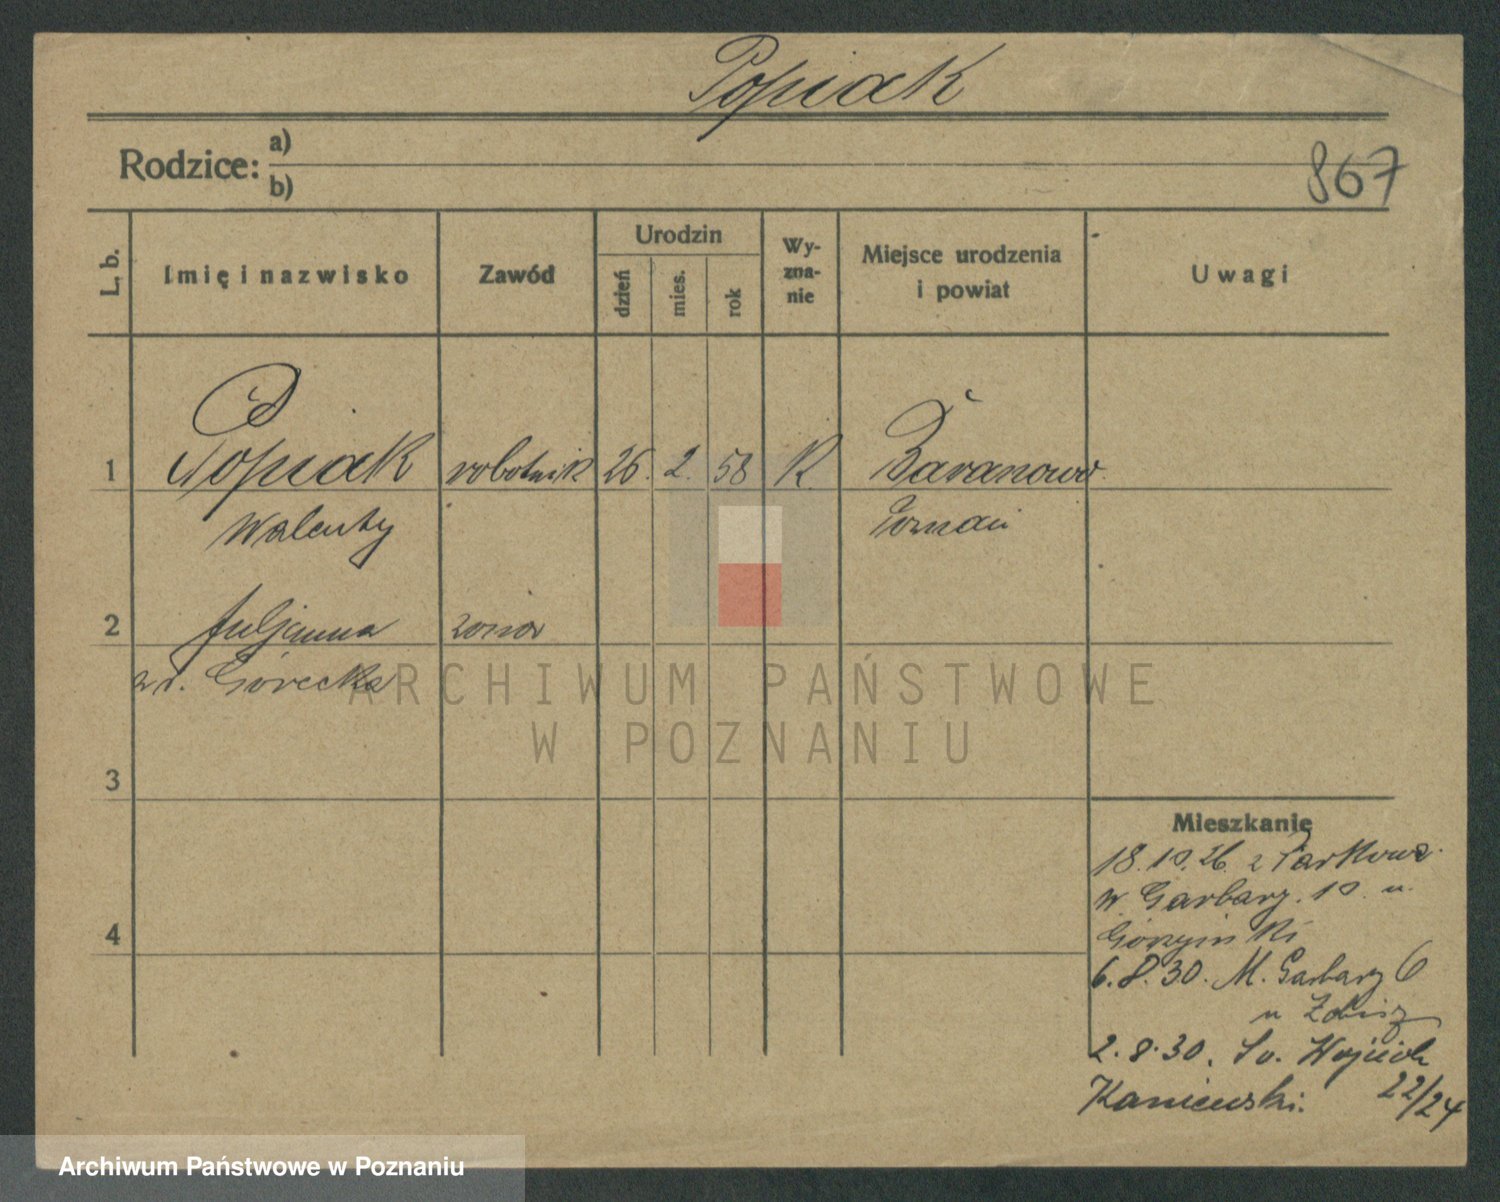 Popiak
Rodzice: a)
b)
867
L. b.
Imię i nazwisko
Zawód
Urodzin
dzień
mies.
rok
Wy-
zna-
nie
Miejsce urodzenia
i powiat
Uwagi
1 Popiak robotnik 26. 2. 58 K. Baranowo
Walenty Poznań
2 Juljanna żona
z d. Górecka
3
4
Mieszkanie
18.10.26 z Parkowa
W. Garbary. 10 u.
6.8.30. M. Garbary 6
u
2.8.30. Św. Wojciech
Kaniewski. 22/24
ARCHIWUM PAŃSTWOWE
W POZNANIU
Archiwum Państwowe w Poznaniu